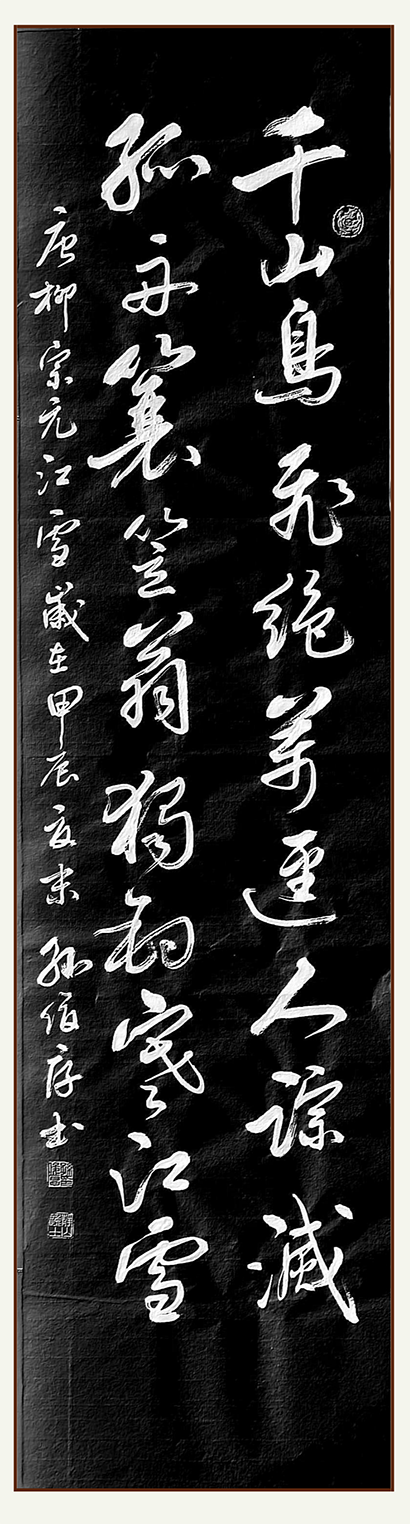 千山鳥飛絕萬逕人踪滅
孤舟簑笠翁獨釣寒江雪
唐柳宗元江雪歲在甲辰夏末 孫俊 书